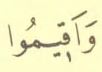 وَاَقٖيمُوا